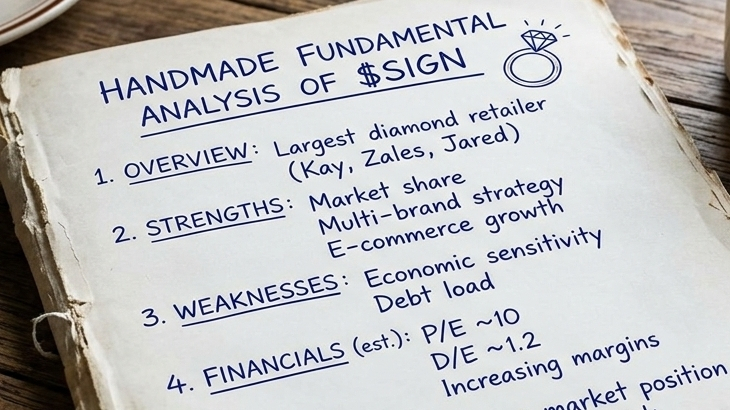 HANDMADE FUNDAMENTAL
ANALYSIS OF $SIGN
1. OVERVIEW: Largest diamond retailer
(Kay, Zales, Jared)
2. STRENGTHS: Market share
Multi-brand strategy
E-commerce growth
3. WEAKNESSES: Economic sensitivity
Debt load
4. FINANCIALS (est.): P/E ~10
D/E ~1.2
Increasing margins
market position